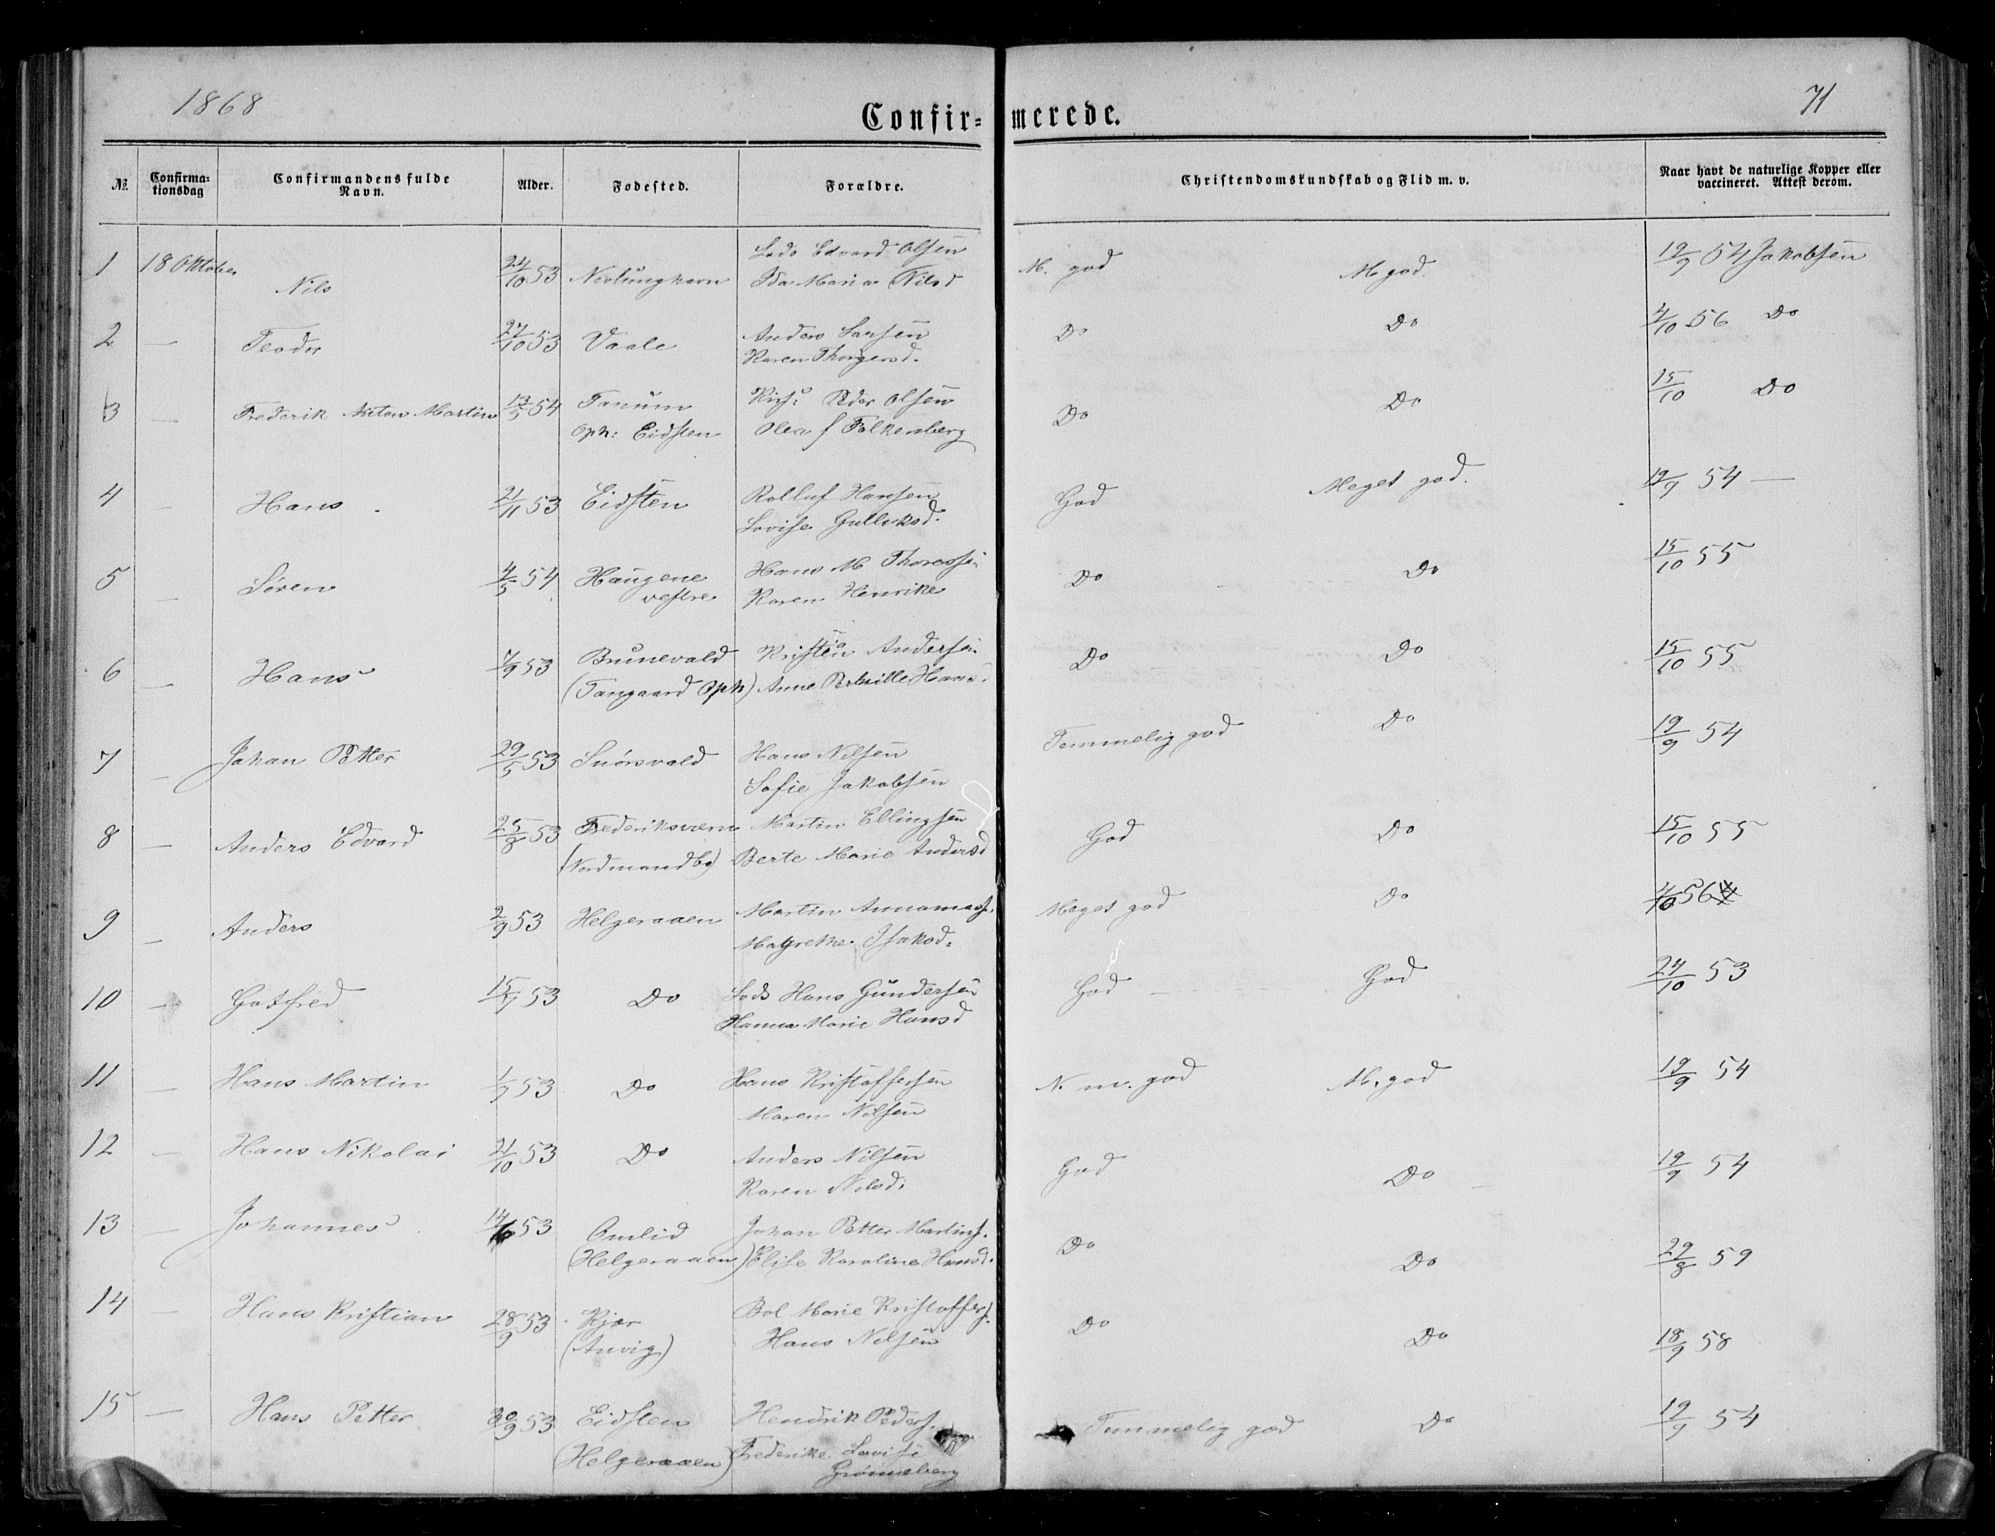 1868
Confir= merede.
71
№ Confirma=tionsdag Confirmandens fulde Navn. Alder. Fødested. Forældre. Christendomskundskab og Flid m. v. Naar havt de naturlige Kopper eller vaccineret. Attest derom.
1 18 Oktober Nils 24/10 53 Nevlunghavn Lods Edvard Olsen M. god M god. 19/9 54 Jakobsen
Ida Maria Nilsd
2 — Teodor 27/10 53 Vaale Anders Larsen Do Do 4/10 56 Do
Karen Thorgersd.
3 — Frederik Anton Martin 13/5 54 Tanum Peder Olsen Do Do 15/10 Do
Oph: Eidsten Olea f Falkenberg
4 — Hans 21/11 53 Eidsten Rolluf Hansen God Meget god. 19/9 54 —
Lovise Gulliksd.
5 — Sören 4/5 54 Haugene Hans M Do Do 15/10 55
vestre Karen Henrike
6 — Hans 7/9 53 Brunevald Kristen Andersen Do Do 15/10 55
(Tangaard Oph) Anne Pernille Hansd
7 — Johan Petter 29/5 53 Hans Nilsen Temmelig god Do 19/9 54
Sofie Jakobsen
8 — Anders Edvard 25/8 53 Frederiksværn Martin Ellingsen God Do 15/10 55
(Nordmandbg) Berte Marie Andersd
9 — Anders 2/9 53 Helgeraaen Martin Meget god Do 4/10 56
Magrethe Isaksd.
10 — Gotfred 15/7 53 Do Lods Hans Gundersen God God 24/10 53
Hanna Marie Hansd
11 — Hans Martin 1/7 53 Do Hans Kristoffersen N. m. god M. god 19/9 54
Maren Nilsen
12 — Hans Nikolai 21/10 53 Do Anders Nilsen God Do 19/9 54
Karen Nilsd.
13 — Johannes 53 Omlid Johan Petter Martins. Do Do 29/8 59
(Helgeraaen) Elise Karoline Hansd.
14 — Hans Kristian 28/9 53 Kjær Bol Marie Kristoffers. Do Do 18/9 58
(Anvig) Hans Nilsen
15 — Hans Petter 30/9 53 Eidsten Hendrik Peders. Temmelig god Do 19/9 54
(Helgeraaen) Frederike Lovise
Grönneberg